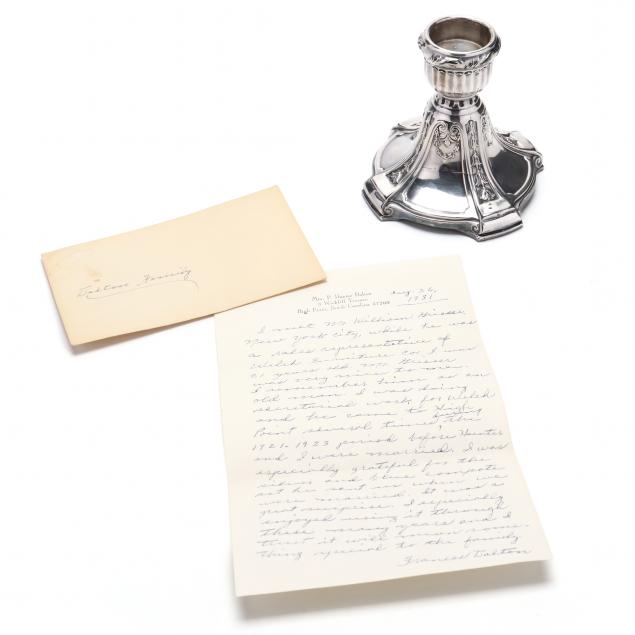 Dalton Family
Mrs. P. Hunter Dalton
High Point, North Carolina 27260
Aug. 26,
1981
I met Mr. William
New York City, while he was
a sales representative of
Welch Furniture Co. I was
21 years old. Mr.
was very nice to me.
I remember him as an
old man. I was doing
secretarial work for Welch
and he came to High
Point several times during the
1921-1923 period before Hunter
and I were married. I was
especially grateful for the
silver and blue compote
set he sent us when we
were married. It was a
great surprise. I especially
enjoyed using it through
these many years and I
trust it will mean some-
thing special to the family
Frances Dalton